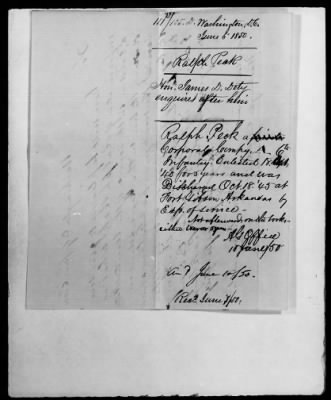 Washington, D.C.
June 6 1850.
Ralph Peak
Hon. James D. Doty
enquires after him
Ralph Peck a
Corporal Compy A 6th
Infantry Enlisted 18 Oct.
'40 for 5 years and was
Discharged Oct 18 '45 at
Fort Gibson Arkansas by
Exp. of service.
Not afterwards on the books
either
AG Office
10 June/50
And June 10/50.
Recd. June 7/50.